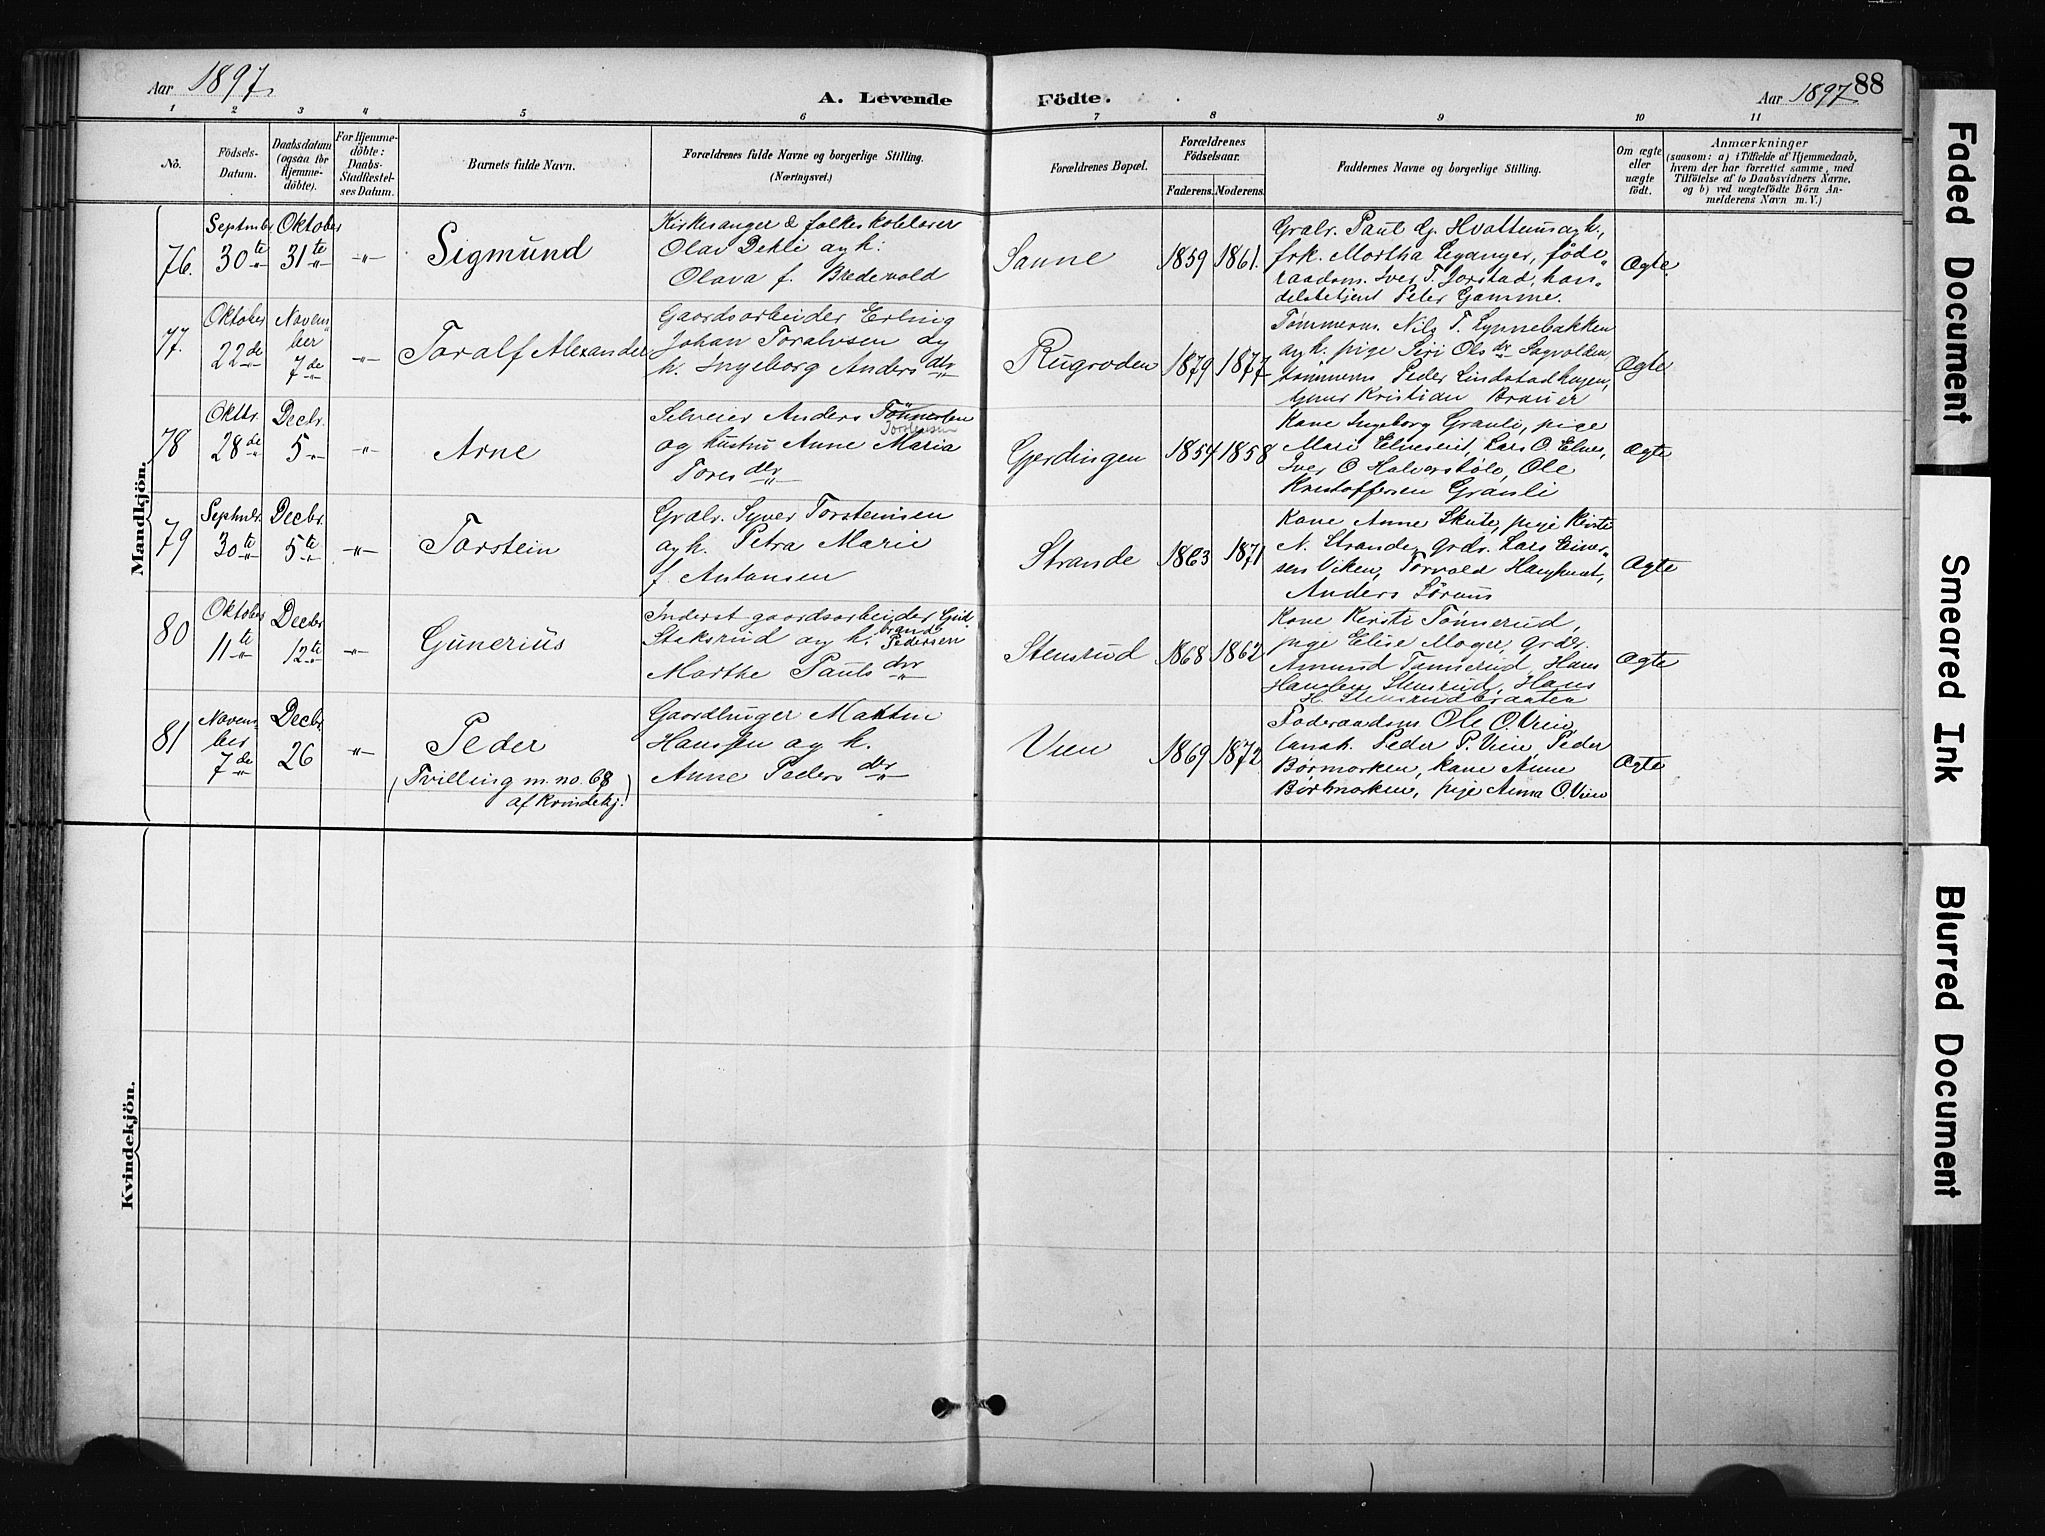 Aar 1897.
A. Levende Födte.
Aar 1897.
88
1 2 3 4 5 6 7 8 9 10 11
No.
Födsels-
Datum.
Daabsdatum
(ogsaa for
Hjemme-
döbte).
For Hjemme-
döbte:
Daabs-
Stadfæstel-
ses Datum.
Barnets fulde Navn.
Forældrenes fulde Navne og borgerlige Stilling.
(Næringsvei.)
Forældrenes Bopæl.
Forældrenes
Födselsaar.
Faderens. Moderens.
Faddernes Navne og borgerlige Stilling.
Om ægte
eller
uægte
födt.
Anmærkninger
(saasom: a) i Tilfælde af Hjemmedaab,
hvem der har forrettet samme, med
Tilföielse af to Daabsvidners Navne,
og b) ved uægtefödte Börn An-
melderens Navn m. V.)
Mandkjön.
76.
September
30te
Oktober
31te
"
Sigmund
Kirkesanger & folkeskolelærer
Olav Dekli og h:
Olava f. Bredevold
Sanne
1859
1861.
Grdr. Paul G. Hvattum og h.,
frk. Martha Leganger, føde-
raadsm. Iver T. Jorstad, han-
delsbetjent Peter Gamme.
Ægte
77.
Oktober
22de
Novem-
ber
7de
"
Toralf Alexander
Gaardsarbeider Erling
Johan Toralvsen og
h. Ingeborg Andersdtr
Rugroden
1879
1877
Tømmerm. Nils T. Lynnebakken
og h. pige Siri Olsdr Sagvolden
tømmerm Peder Lindstadhagen,
Kristian Brauer
Ægte
78
Oktbr.
28de
Decbr.
5
"
Arne
Selveier Anders Tönnesen
Torstensen
og hustru Anne Maria
Toresdtr
Gjerdingen
1854
1858
Kone Ingeborg Granli, pige
Mari Elneseiet, Lars O. Elnes,
Iver O Halvorsböle, Ole
Kristoffersen Gränli
Ægte
79
Septmbr.
30te
Decbr.
5te
"
Torstein
Grdr. Syver Torsteinsen
og h. Petra Marie
f. Antonsen
Strande
1863
1871
Kone Anne Skute, pige Kirsti
N. Strande, grdr. Lars Einer-
sen Viken, Torvald
Anders Sørum
Ægte
80
Oktober
11te
Decbr
12te
"
Gunerius
Inderst gaardsarbeider Gud-
brand
Steksrud og h. Pedersen
Marthe Paulsdtr
Stensrud
1868
1862
Kone Kirsti Tønnerud,
pige Elise Moger, grdr.
Amund Tønnerud, Hans
Hansen Stensrud, Hans
H. Stensrudbraaten
Ægte
81
Novem-
ber
7de
Decbr.
26
"
Peder
(Tvilling m. no. 68
af kvindekj.)
Gaardbruger Martin
Hanssen og h.
Anne Pedersdtr
Vien
1869
1872
Føderaadsm Ole O. Vien,
ungk. Peder P. Vien, Peder
Børmarken, kone Anne
Børtmarken, pige Anna O. Vien
Ægte
Kvindekjön.
Faded Document
Smeared Ink
Blurred Document